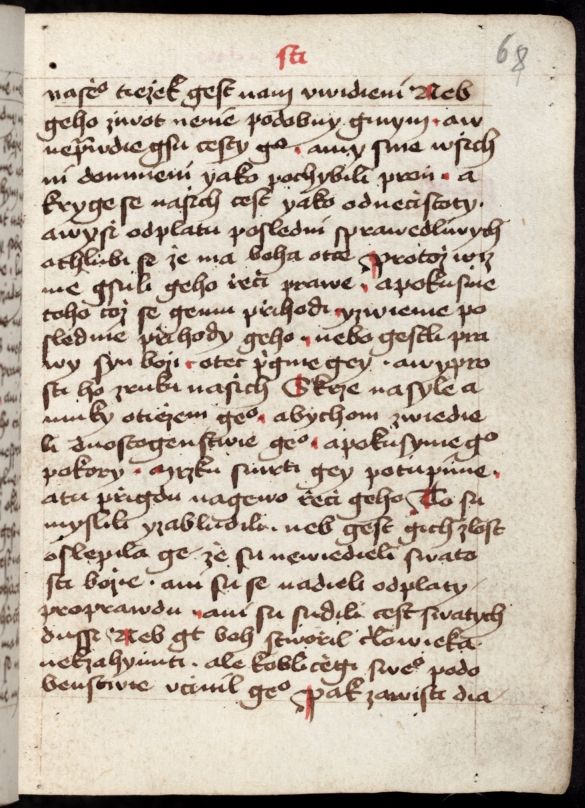 sti
68
naše° tiežek gest nam uwidieni Neb
geho ziwot nenie podobny ginym · aw
nep̃wdie gsu cesty go · amy sme wsich
ni domnieni yako pochybili pron · a
kryge se nasich cest yako odnečistoty·
awysi odplatu poslední sprawedliwych
achlubi se že ma boha otce Protož wiz
me gsuli geho řeči prawe · apokusme
toho což se gemu přihodi · yzwieme po
slednie přihody geho · nebo gestli pra
wy syn boži · otec p̃gme gey · awypro
sti ho zruku nasich Skrze nasyle a
muky otiežem ge° · abychom zwiedie
li duostogenstwie ge° · apokusyme go
pokory · mrzku smrti gey potupíme ·
atu přigdu nagewo řeči geho To su
myslili yzabludili · neb gest gich zlost
oslepila ge · že su newiedieli swato
sti božie · ani su se nadieli odplaty
proprawdu · ani su sudili cest swatych
dussi Neb gt boh stwořil člowieka
nekzahynuti · ale kobličegi swe° podo
benstwie učinil ge° Pak zawisti dia